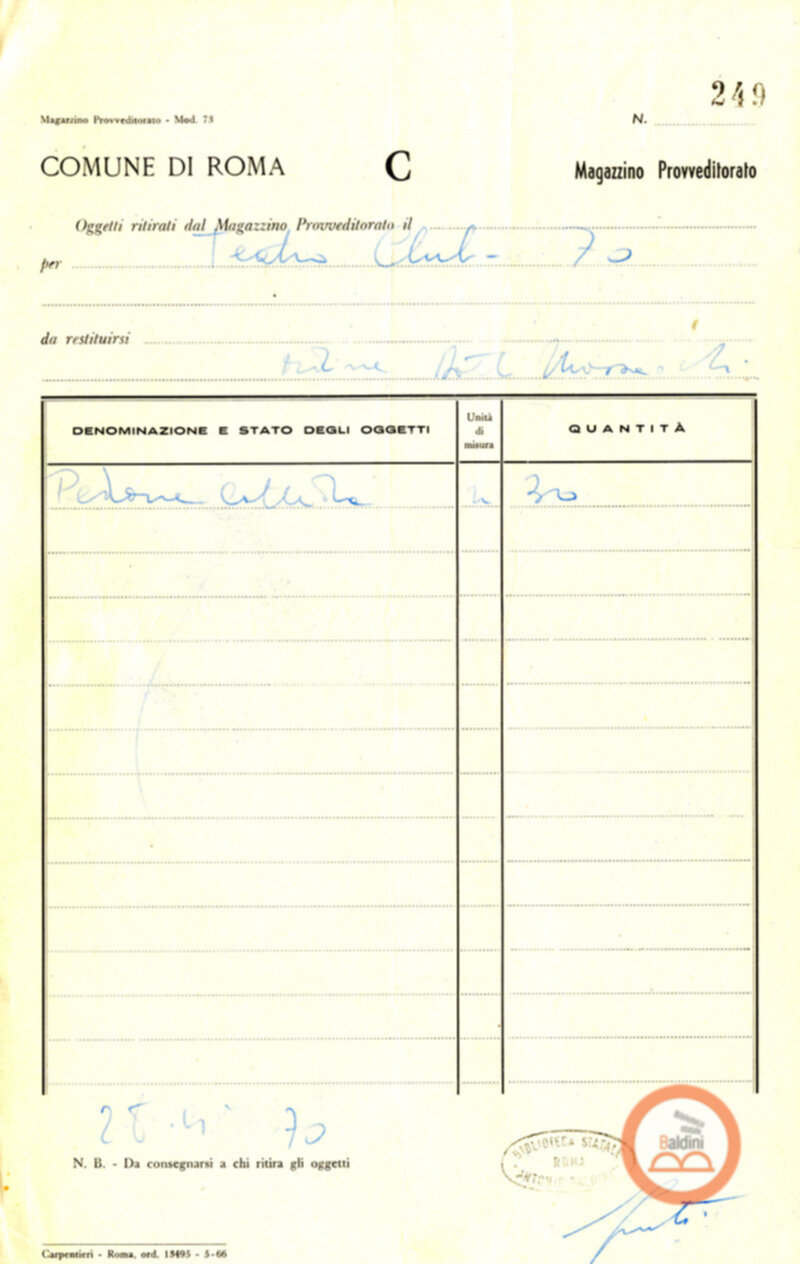 249
Magazzino Provveditorato - Mod. 73
N.
COMUNE DI ROMA C Magazzino Provveditorato
Oggetti ritirati dal Magazzino Provveditorato il
per Teatro Club - 70
da restituirsi
DENOMINAZIONE E STATO DEGLI OGGETTI
Unità di misura
QUANTITÀ
n 30
28 70
N. B. - Da consegnarsi a chi ritira gli oggetti
BIBLIOTECA STATALE
ROMA
Biblioteca
statale
Baldini
Carpentieri - Roma, ord. 13495 - 5-66